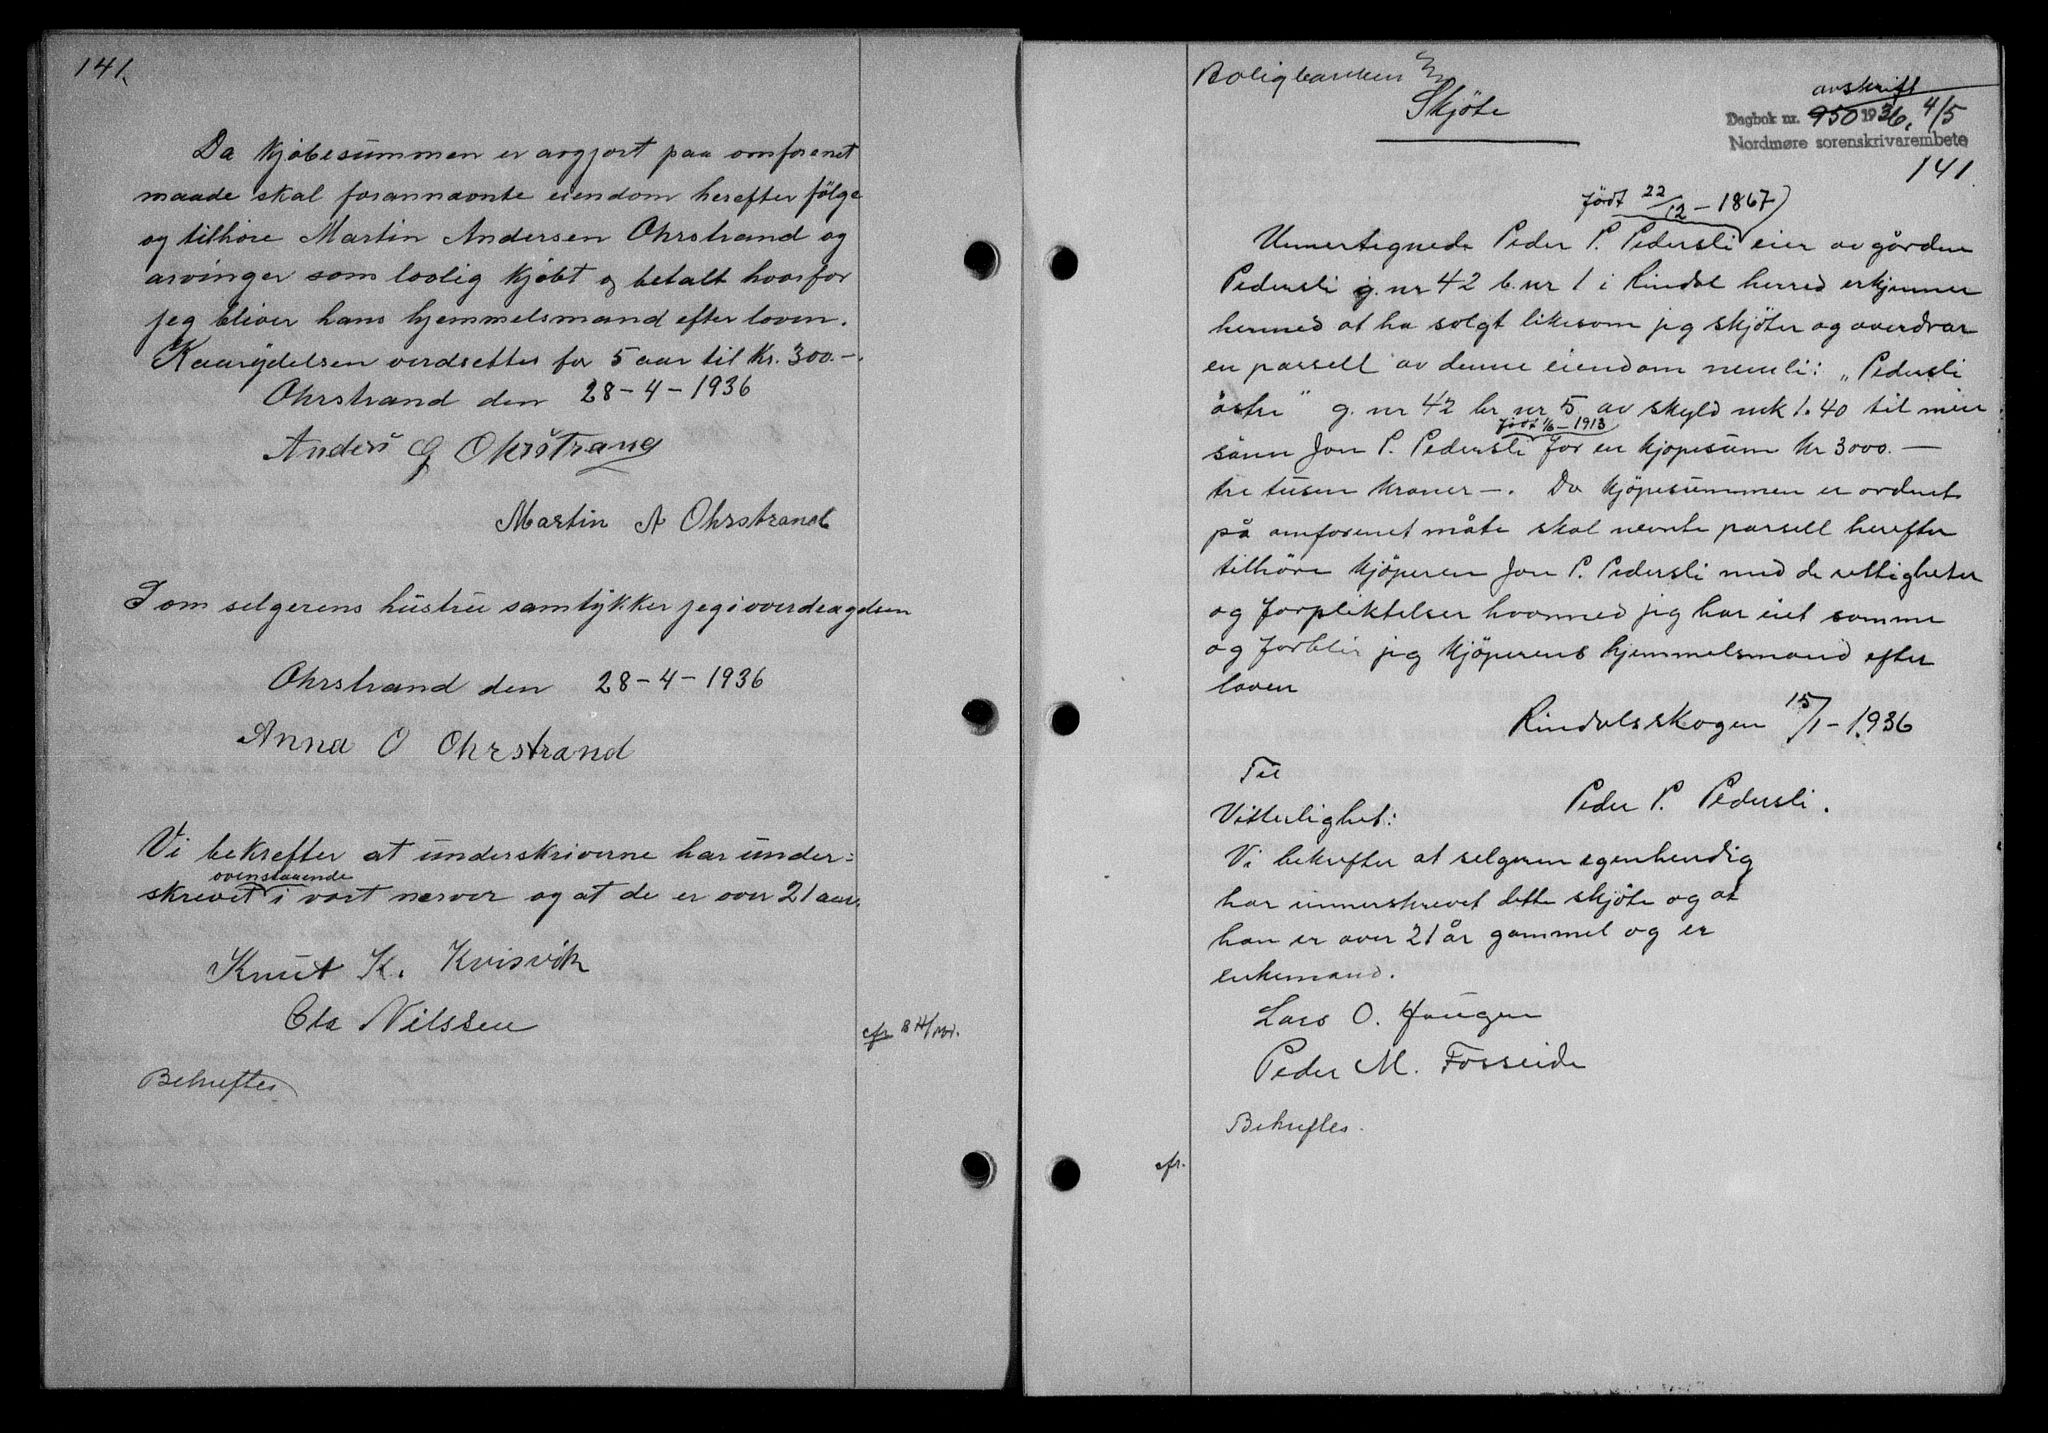 141.
Da kjøbesummen er avgjort paa omforenet
maade skal forannævnte eiendom herefter følge
og tilhøre Martin Andersen Ohrstrand og
arvinger som lovlig kjøbt og betalt hvorfor
jeg bliver hans hjemmelsmand efter loven.
Kaarydelsen verdsettes for 5 aar til Kr. 300.-
Ohrstrand den 28-4-1936
Anders G Ohrstrand
Martin A Ohrstrand
Som selgerens hustru samtykker jeg i overdragelsen
Ohrstrand den 28-4-1936
Anna O Ohrstrand
Vi bekrefter at underskriverne har under-
ovenstaaende
skrevet i vort nærver og at de er over 21 aar.
Knut K. Kvisvik
Ola Nilssen
cfr
Bekreftes
Boligbanken
Skjöte
avskrift
Dagbok nr. 950 1936, 4/5
Nordmøre sorenskrivarembete
141.
født 22/12 - 1867
Unnertegnede Peder P. Pedersli eier av gården
Pedersli g.nr 42 b.nr 1 i Rindal herred erkjenner
herved at ha solgt likesom jeg skjöter og overdrar
en parsell av denne eiendom nemli: „Pedersli
östre" g. nr 42 br nr 5 av skyld mk 1.40 til min
født 1/6 - 1913
sönn Jon P. Pedersli for en kjöpesum Kr 3000.—
tre tusen kroner —. Da kjöpesummen er ordnet
på omforenet måte skal nevnte parsell herefter
tilhöre kjöperen Jon P. Pedersli med de rettigheter
og forpliktelser hvormed jeg har eiet samme
og forblir jeg kjöperens hjemmelsmand efter
loven
Rindalsskogen 15/1 - 1936
Til
Peder P. Pedersli.
Vitterlighet:
Vi bekrefter at selgeren egenhendig
har unnerskrevet dette skjöte og at
han er over 21 år gammel og er
enkemand.
Lars O. Haugen
Peder M. Fosseide
Bekreftes.
cfr.